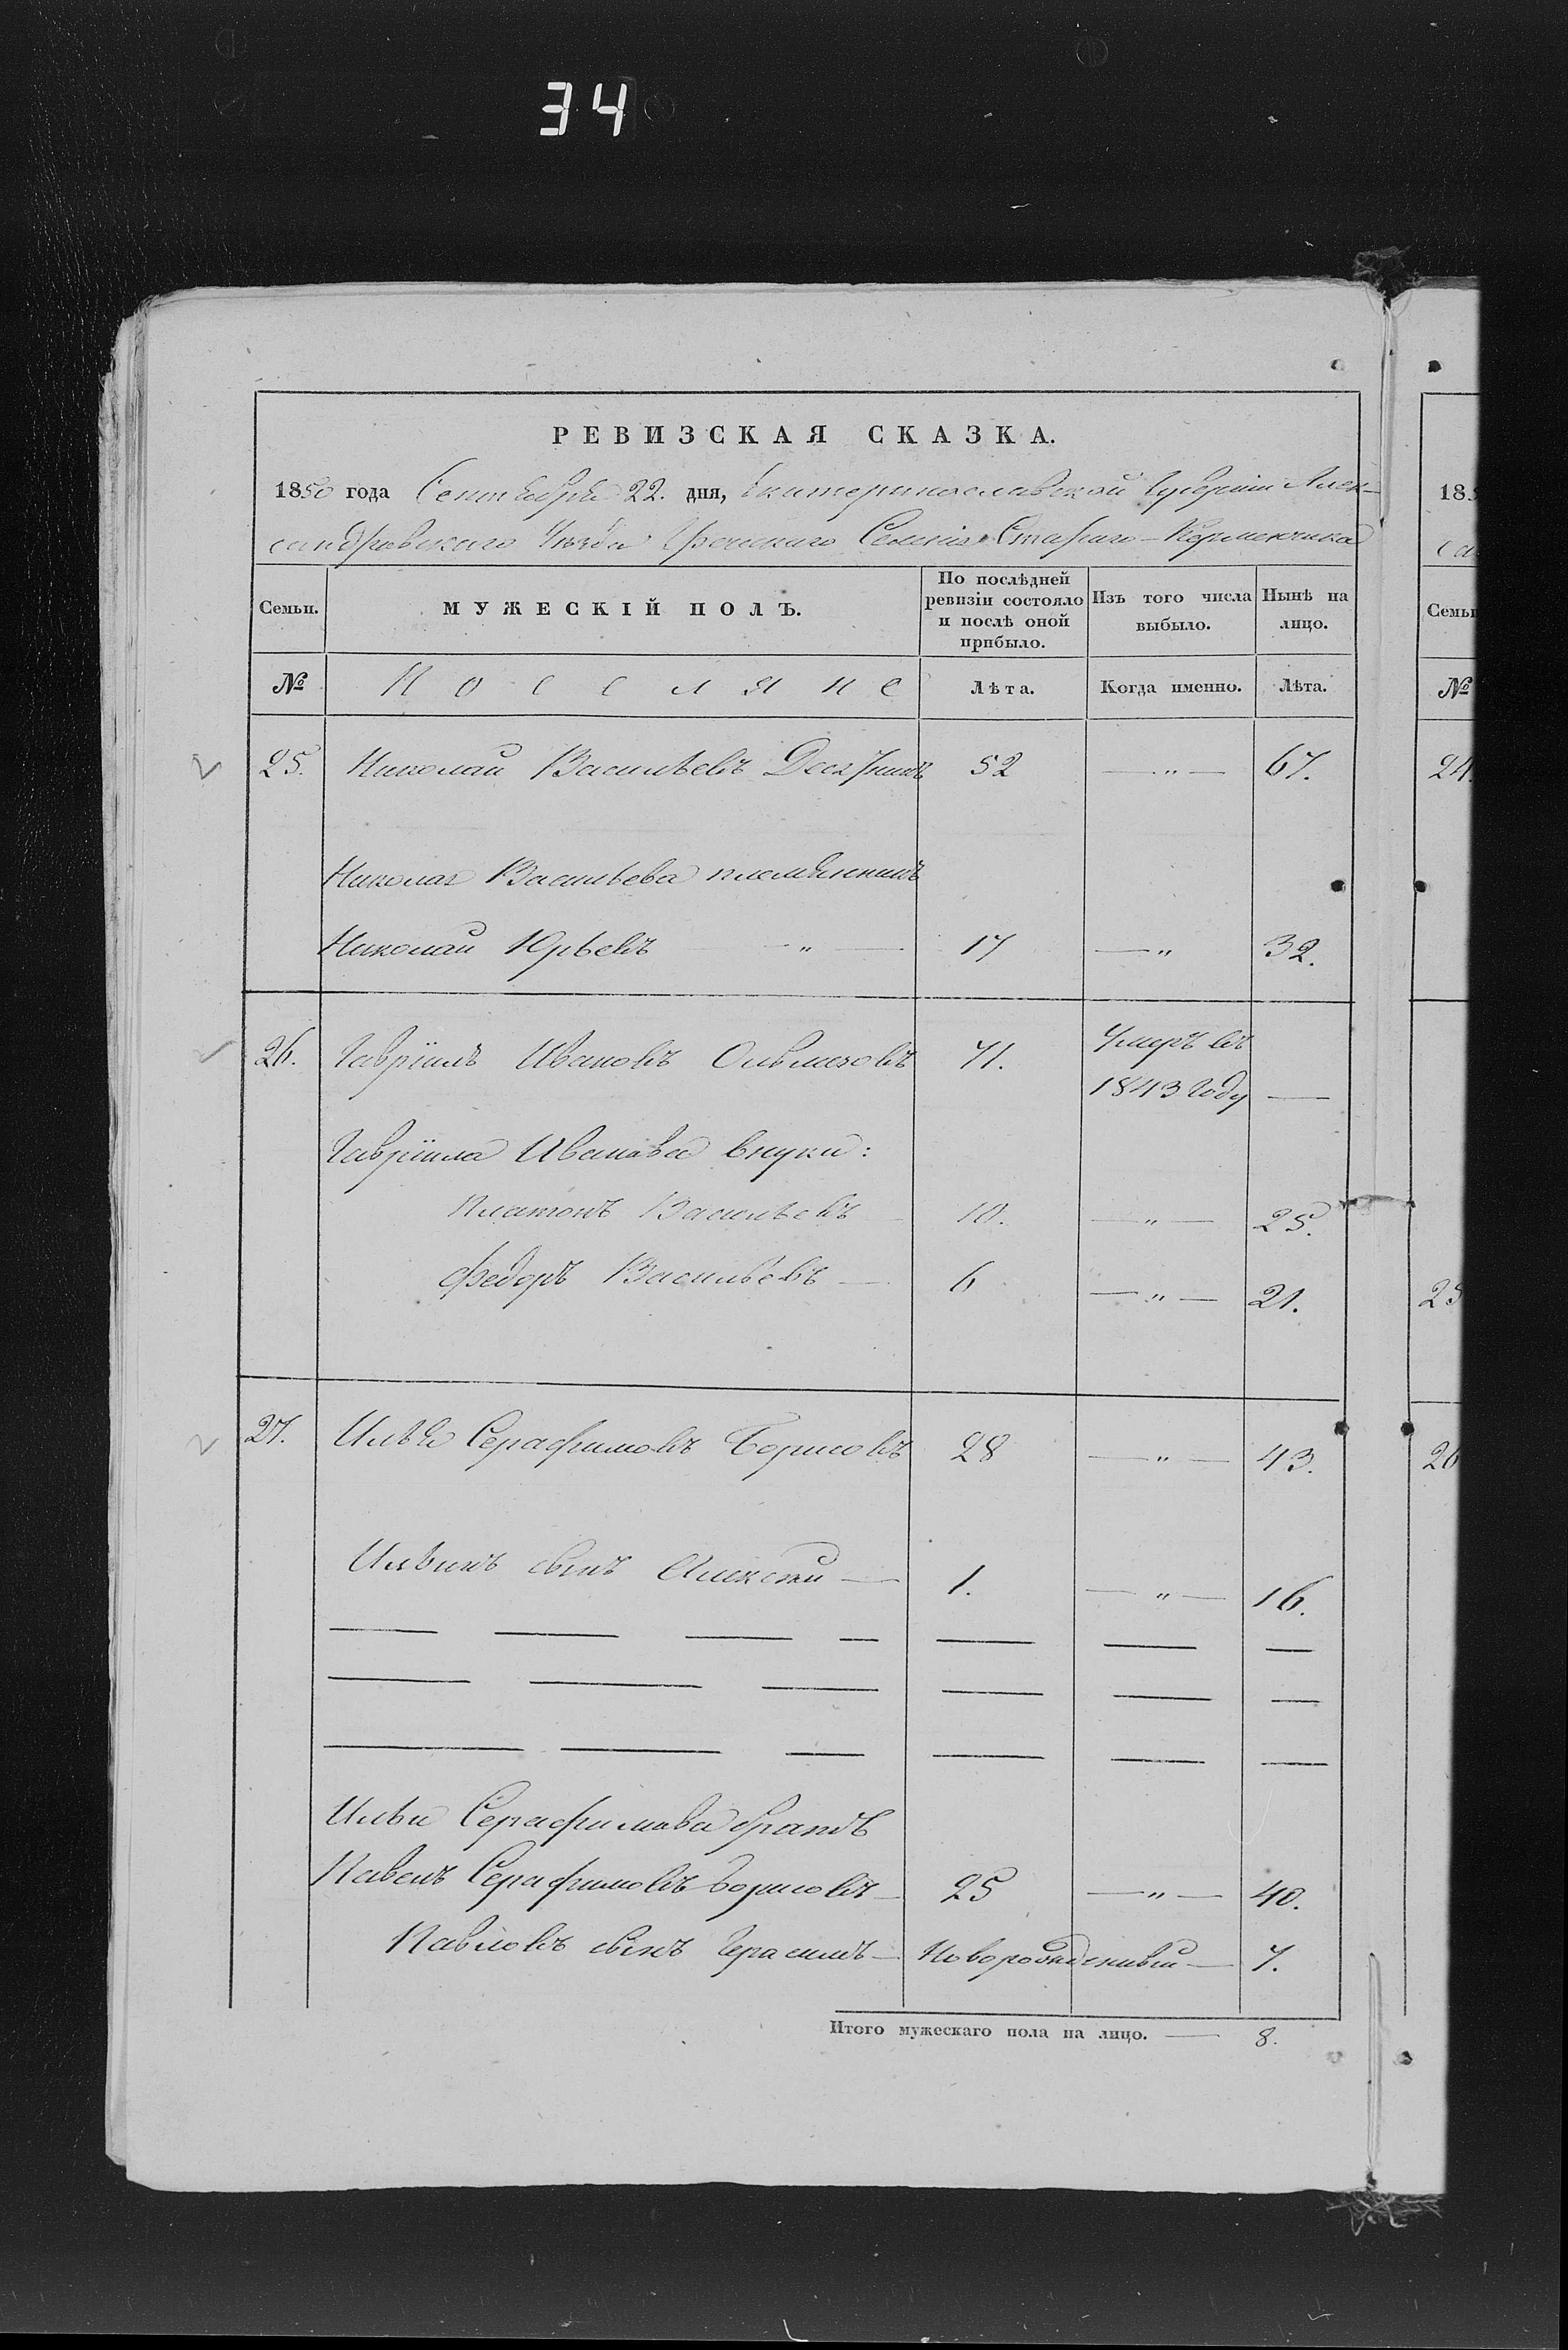 34
РЕВИЗСКАЯ СКАЗКА.
1850 года Сентября 22. дня, Екатеринославской Губерніи Алек-
сандровскаго Уѣзда Греческаго Селенія Стараго-Керменчика
Семьи. МУЖЕСКІЙ ПОЛЪ. По послѣдней ревизіи состояло и послѣ оной прибыло. Изъ того числа выбыло. Нынѣ на лицо.
№ Поселяне Лѣта. Когда именно. Лѣта.
25. Николай Васильевъ 52 — " — 67.
Николая Васильева племянникъ
Николай Юрьевъ — " — 17 — " 32.
26. Гавріилъ Ивановъ 71. Умеръ въ
1843 году —
Гавріила Иванова внуки:
Платонъ Васильевъ — 10. — " — 25.
Федоръ Васильевъ — 6 — " — 21.
27. Илья Серафимовъ Борисовъ 28 — " — 43.
Ильинъ сынъ Алексѣй — 1. — " — 16.
Ильи Серафимова братъ
Павелъ Серафимовъ Борисовъ — 25 — " — 40.
Павловъ сынъ Герасимъ — Новорожденный — 7.
Итого мужескаго пола на лицо. — 8.
185
са
Семьи
№
24.
25
26